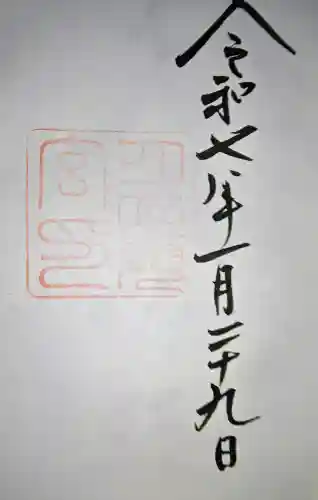 令和七年一月二十九日
宮印